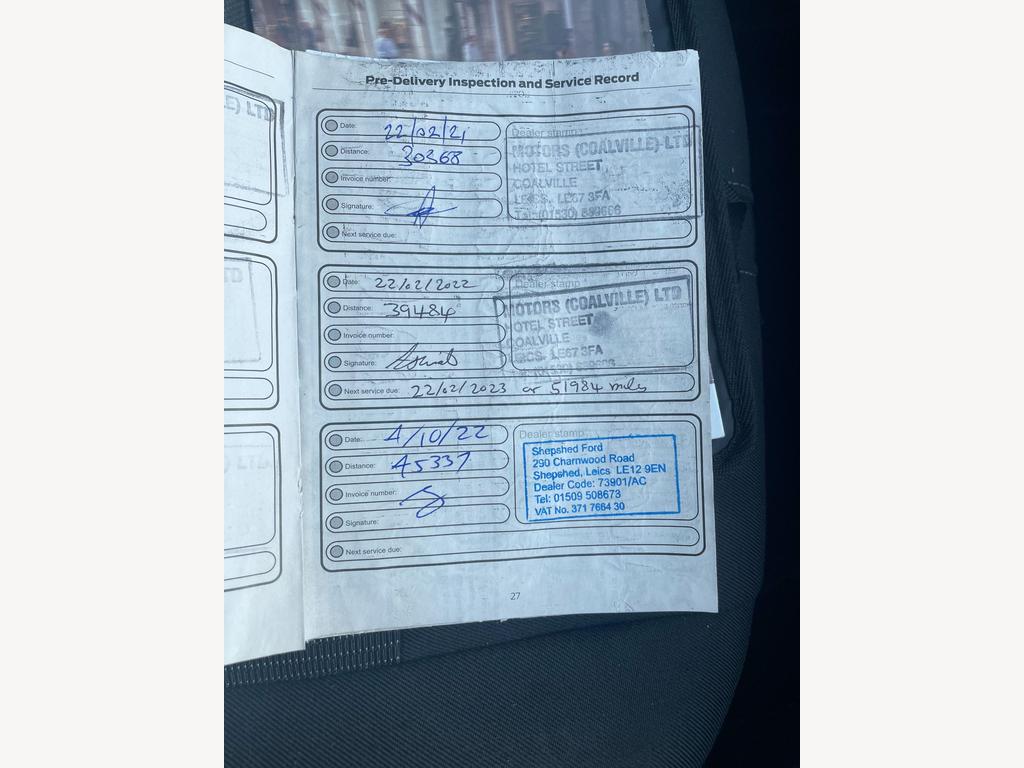 Pre-Delivery Inspection and Service Record
Date: 22/02/21
Distance: 30368
Invoice number:
Signature:
Next service due:
Dealer stamp
MOTORS (COALVILLE) LTD
HOTEL STREET
COALVILLE
LEICS. LE67 3FA
Date: 22/02/2022
Distance: 39484
Invoice number:
Signature:
Next service due: 22/02/2023 or 51984 miles
Dealer stamp
MOTORS (COALVILLE) LTD
HOTEL STREET
COALVILLE
LE67 3FA
Date: 4/10/22
Distance: 45337
Invoice number:
Signature:
Next service due:
Dealer stamp
Shepshed Ford
290 Charnwood Road
Shepshed, Leics LE12 9EN
Dealer Code: 73901/AC
Tel: 01509 508673
VAT No. 371 7664 30
27